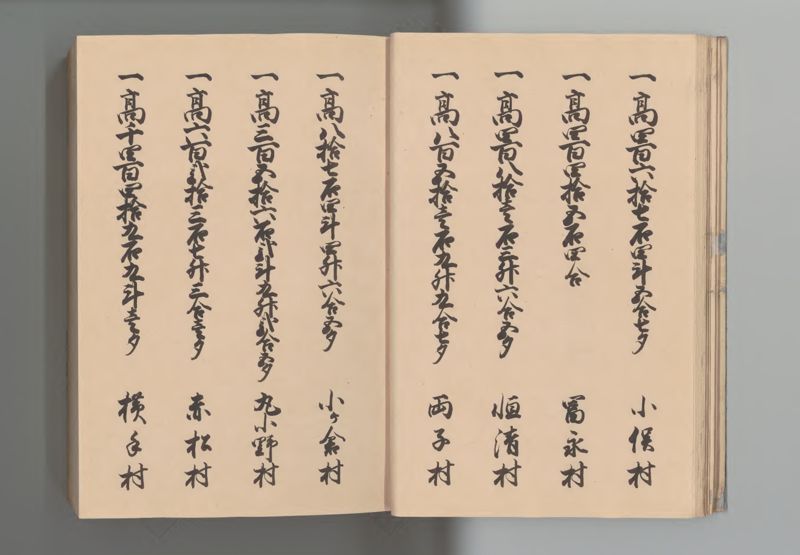 一 高四百六拾七石四斗五合七夕 小俣村
一 高四百四拾五石四合 冨永村
一 高四百八拾壱石三升六合五夕 恒清村
一 高八百五拾壱石九升九合七夕 両子村
一 高八拾七石四斗四升六合五夕 小ヶ倉村
一 高三百五拾六石弐斗九升弐合五夕 丸小野村
一 高六百弐拾三石七升三合壱夕 赤松村
一 高千四百四拾九石九斗壱夕 横手村